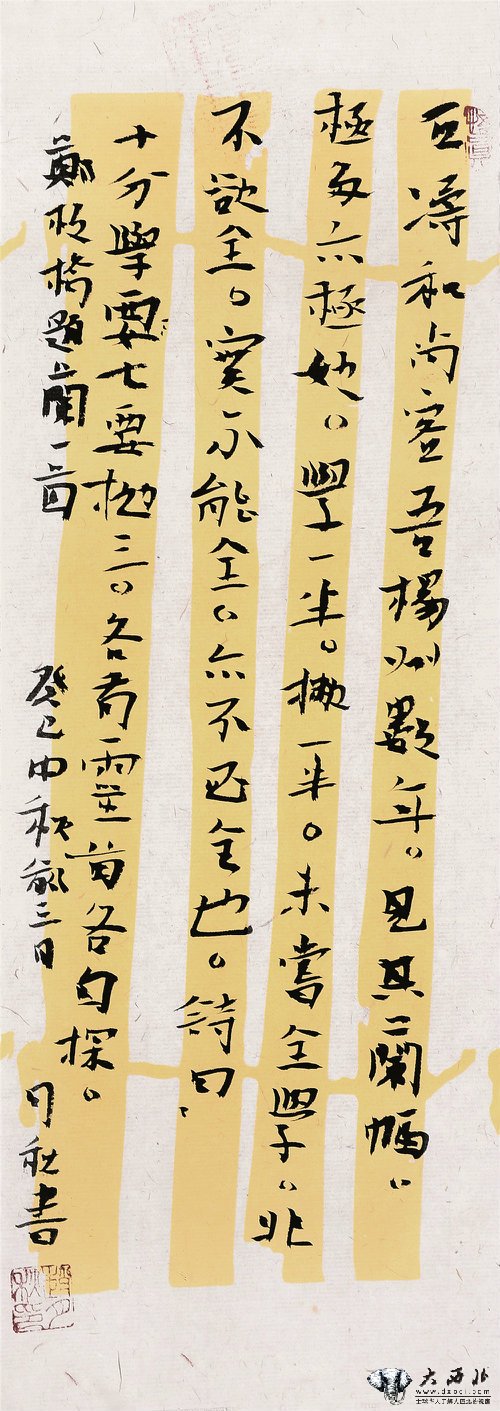 石濤和尚客吾楊州數年。見其蘭幅。
極多亦極妙。學一半。撇一半。未嘗全學。非
不欲全。實不能全。亦不必全也。詩曰、
十分學要七要抛三。各有靈苗各自探。
鄭板橋題蘭一首 癸巳中秋三日 月秋書
大西北